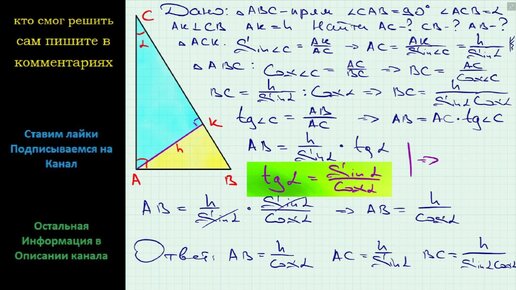 кто смог решить
сам пишите в
комментариях
Ставим лайки
Подписываемся на
Канал
Остальная
Информация в
Описании канала
C
α
K
h
A
B
Дано: △ABC-прям ∠CAB=90° ∠ACB=α
AK⊥CB AK=h Найти AC-? CB-? AB-?
△ACK: Sin∠C = AK/AC → AC = AK/Sin∠C = h/Sinα
△ABC: Cos∠C = AC/BC ⇒ BC = AC/Cos∠C
BC = h/Sinα : Cosα ⇒ BC = h/SinαCosα
tg∠C = AB/AC ⇒ AB = AC·tg∠C
AB = h/Sinα · tgα
tgα = Sinα/Cosα
| ⇒
AB = h/Sinα · Sinα/Cosα ⇒ AB = h/Cosα
Ответ: AB = h/Cosα AC = h/Sinα BC = h/SinαCosα